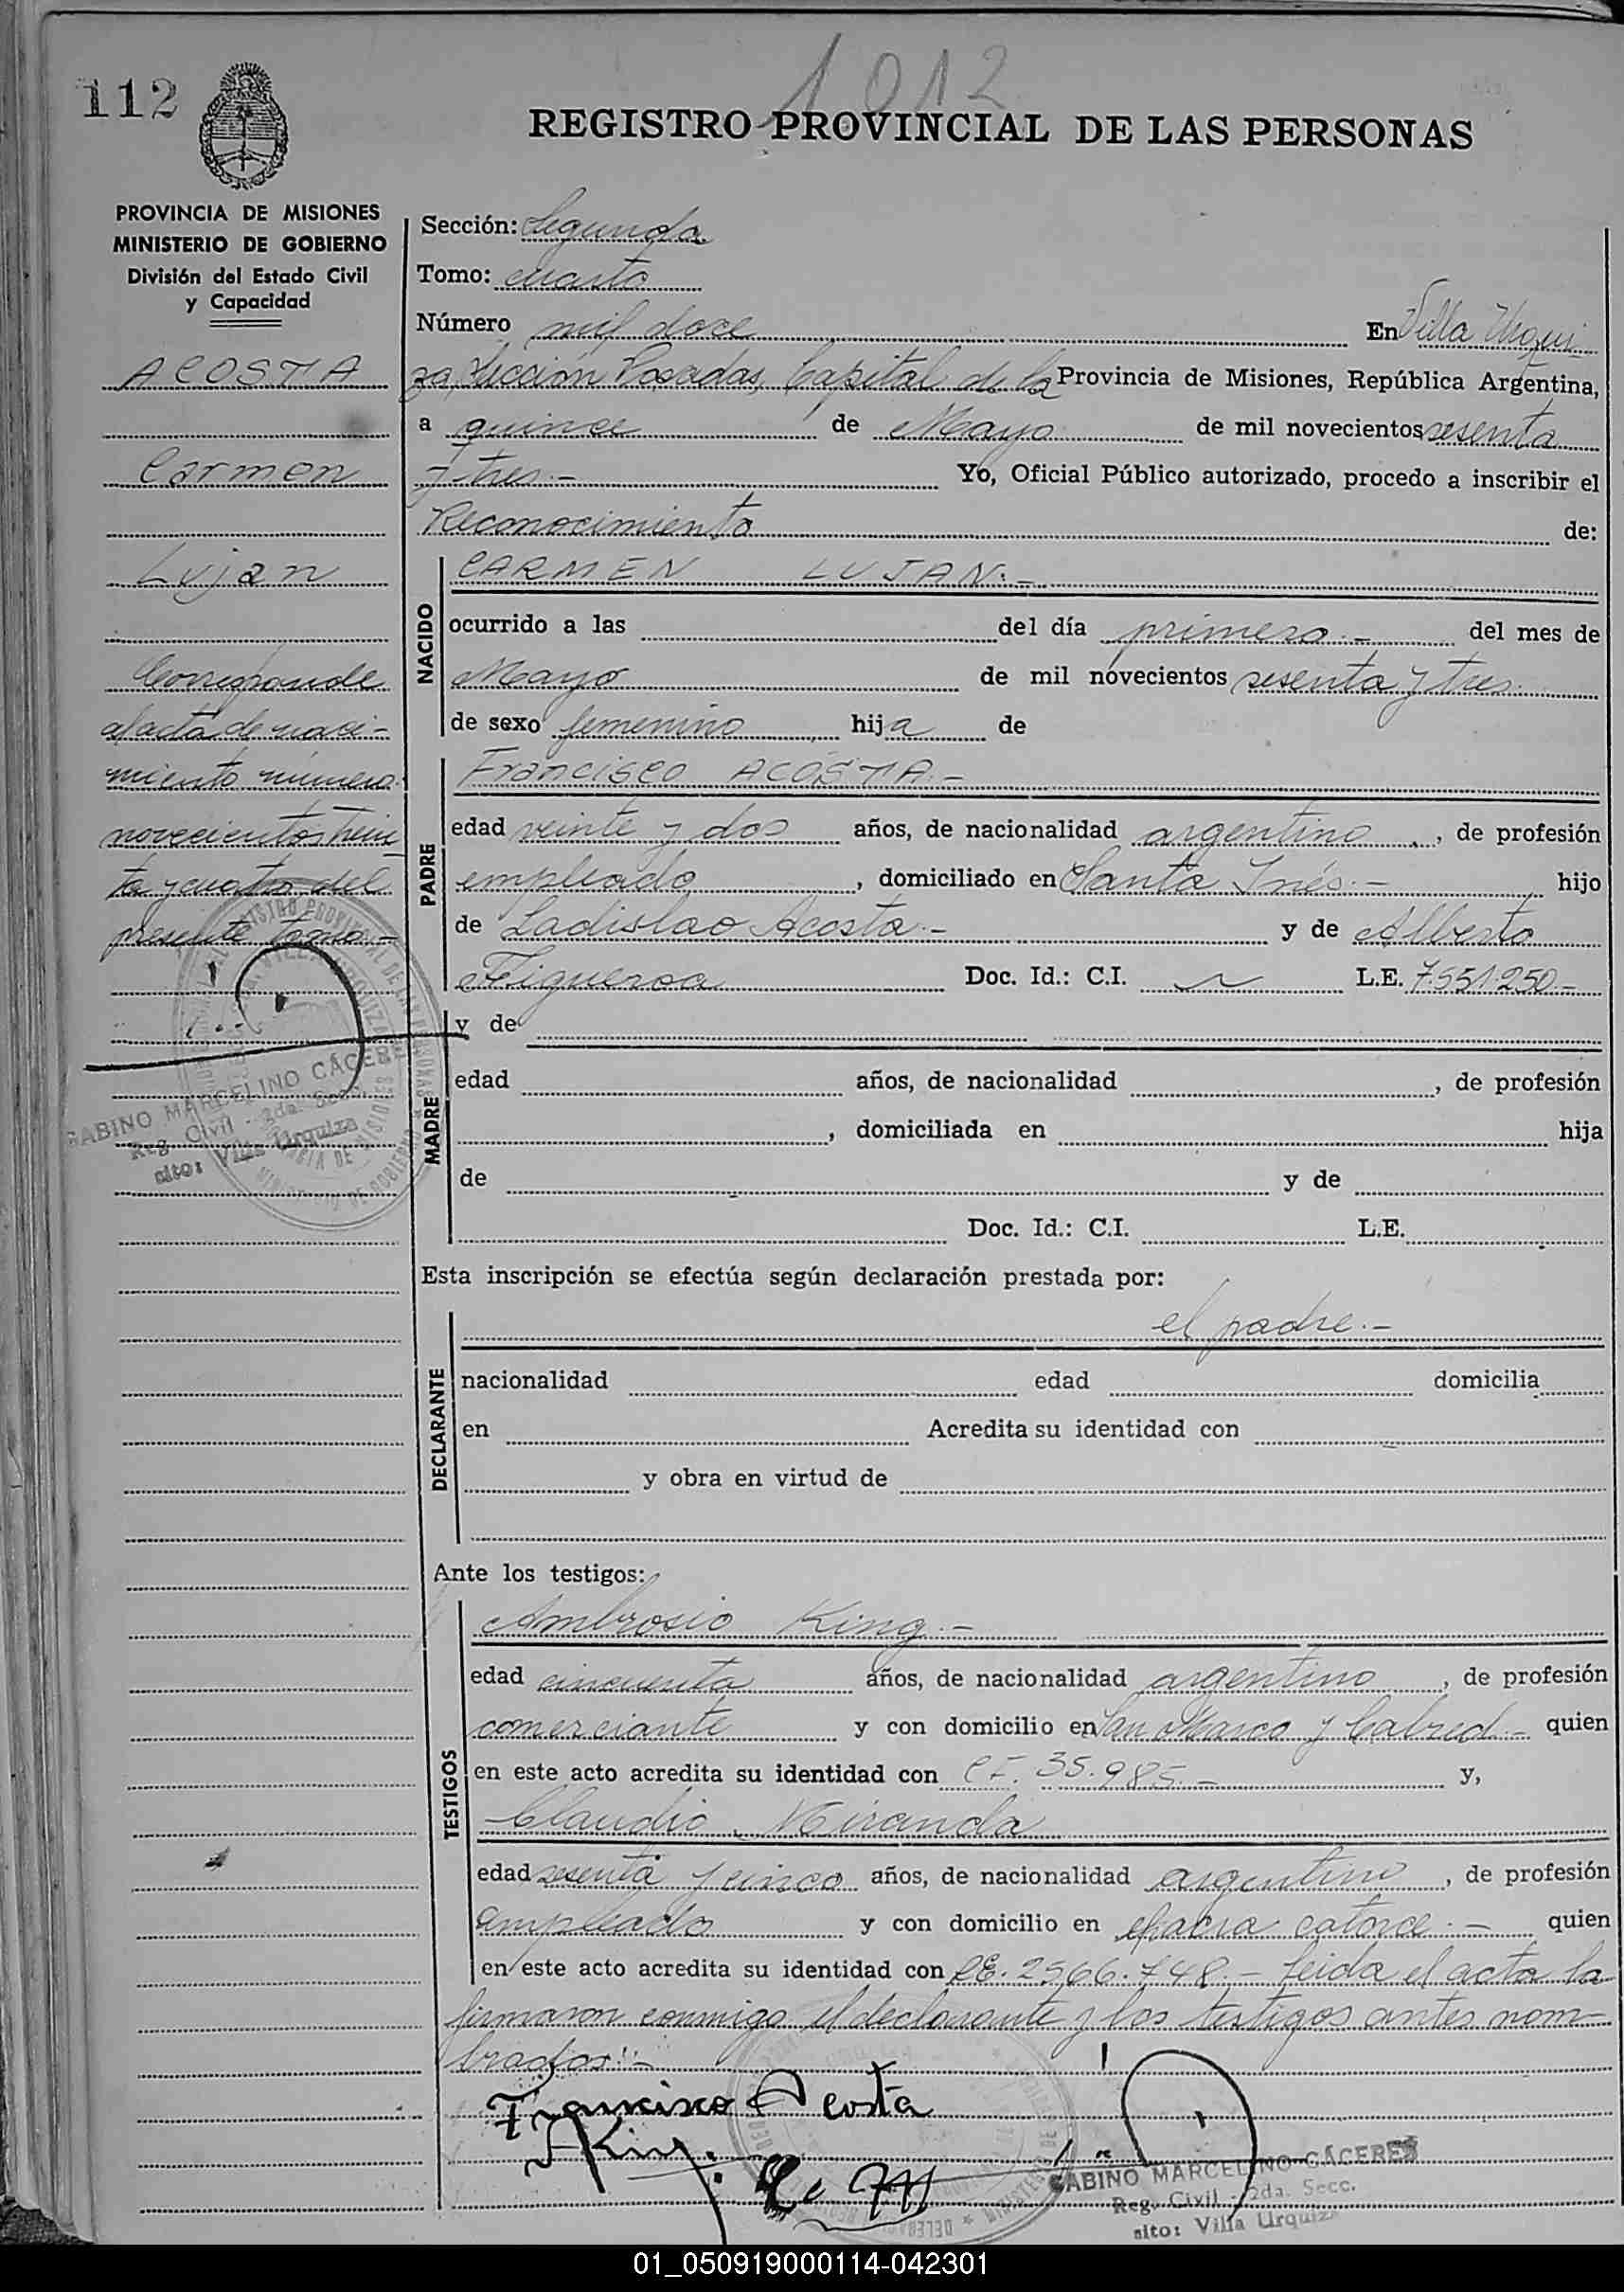 1012
112
REGISTRO PROVINCIAL DE LAS PERSONAS
PROVINCIA DE MISIONES
MINISTERIO DE GOBIERNO
División del Estado Civil
y Capacidad
ACOSTA
Carmen
Lujan
Corresponde
al acta de naci-
miento número
novecientos trein
ta y cuatro del
presente tomo.-
GABINO MARCELINO CÁCERES
Reg. Civil - 2da. Secc.
sito: Villa Urquiza
Sección: Segunda
Tomo: cuarto
Número mil doce En Villa Urqui
za, Sección Posadas, Capital de la Provincia de Misiones, República Argentina,
a quince de Mayo de mil novecientos sesenta
y tres.- Yo, Oficial Público autorizado, procedo a inscribir el
Reconocimiento de:
NACIDO
CARMEN LUJAN.-
ocurrido a las del día primero.- del mes de
Mayo de mil novecientos sesenta y tres.
de sexo femenino hija de
PADRE
Francisco ACOSTA.-
edad veinte y dos años, de nacionalidad argentino, de profesión
empleado, domiciliado en Santa Inés.- hijo
de Ladislao Acosta.- y de Alberta
Figueroa Doc. Id.: C.I. L.E. 7.551.250.-
MADRE
y de
edad años, de nacionalidad , de profesión
, domiciliada en hija
de y de
Doc. Id.: C.I. L.E.
Esta inscripción se efectúa según declaración prestada por:
DECLARANTE
el padre.-
nacionalidad edad domicilia
en Acredita su identidad con
y obra en virtud de
Ante los testigos:
TESTIGOS
Ambrosio King.-
edad cincuenta años, de nacionalidad argentino, de profesión
comerciante y con domicilio en San Marco y Cabred.- quien
en este acto acredita su identidad con CI. 35.985.- y,
Claudio Miranda
edad sesenta y cinco años, de nacionalidad argentino, de profesión
empleado y con domicilio en chacra catorce.- quien
en este acto acredita su identidad con LE. 2566.748.- Leida el acta la
firmaron conmigo el declarante y los testigos antes nom-
brados.-
Francisco Acosta
AKing.
GABINO MARCELINO CÁCERES
Reg. Civil - 2da. Secc.
sito: Villa Urquiza
01_050919000114-042301